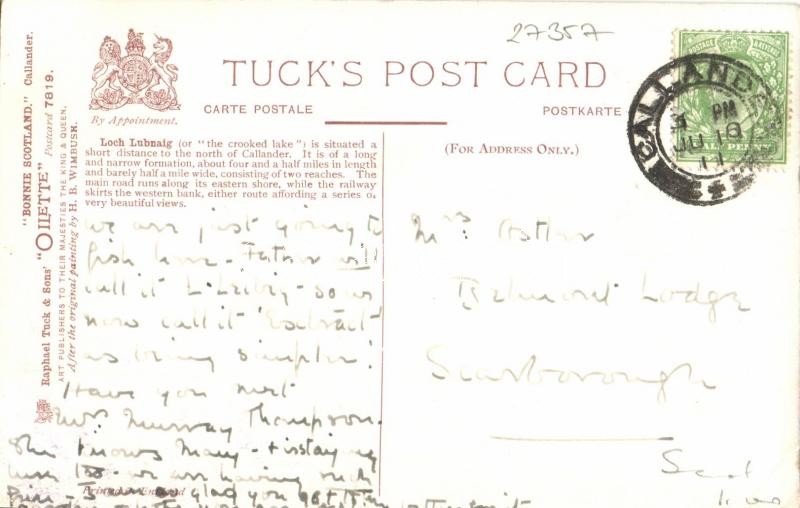 27357
TUCK'S POST CARD
By Appointment.
CARTE POSTALE
POSTKARTE
Loch Lubnaig (or "the crooked lake") is situated a
short distance to the north of Callander. It is of a long
and narrow formation, about four and a half miles in length
and barely half a mile wide, consisting of two reaches. The
main road runs along its eastern shore, while the railway
skirts the western bank, either route affording a series of
very beautiful views.
(FOR ADDRESS ONLY.)
"BONNIE SCOTLAND." Callander.
Raphael Tuck & Sons' "OILETTE" Postcard 7819.
ART PUBLISHERS TO THEIR MAJESTIES THE KING & QUEEN.
After the original painting by H. B. WIMBUSH.
POSTAGE & REVENUE
HALFPENNY
CALLANDER
PM
JU 19
11
we are just going to
fish here - Father will
call it L. Leibig - so we
now call it 'Extract'
as being simpler!
Have you met
Mrs Murray Thompson.
She knows Mary - & is staying
here too - we are having such
glad you
Printed in England
Mrs.
Belmont Lodge
Scarborough